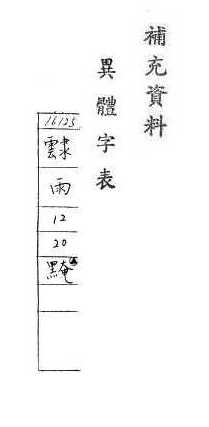 補充資料
異體字表
16123
雨
12
20
黤